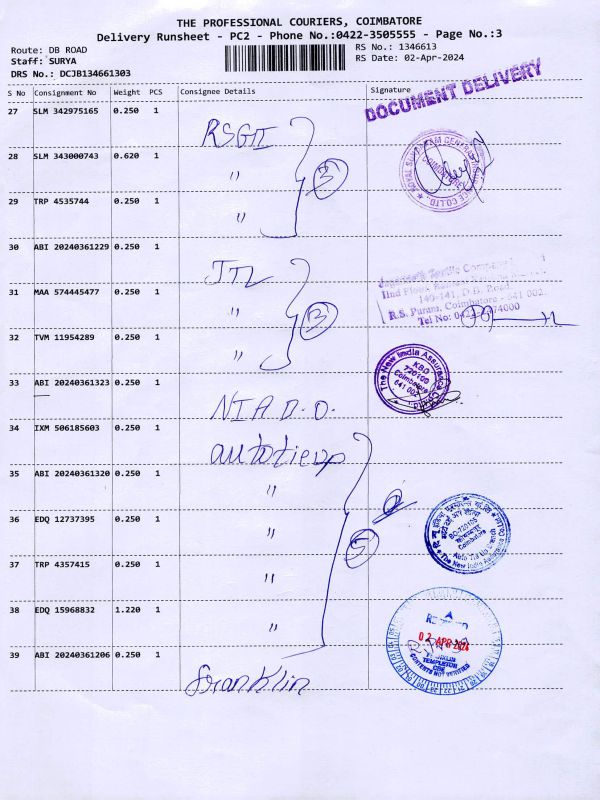 THE PROFESSIONAL COURIERS, COIMBATORE
Delivery Runsheet - PC2 - Phone No.:0422-3505555 - Page No.:3
Route: DB ROAD
Staff: SURYA
DRS No.: DCJB134661303
RS No.: 1346613
RS Date: 02-Apr-2024
S No Consignment No Weight PCS Consignee Details Signature
DOCUMENT DELIVERY
27 SLM 342975165 0.250 1
RSGI
28 SLM 343000743 0.620 1
" 3
COIMBATORE
29 TRP 4535744 0.250 1
"
30 ABI 20240361229 0.250 1
JTL
31 MAA 574445477 0.250 1
" 3
140-141, D.B. Road,
R.S. Puram, Coimbatore - 641 002.
Tel No:
32 TVM 11954289 0.250 1
"
The New India Assurance
720100
Coimbatore
641 002
33 ABI 20240361323 0.250 1
NIA D.O.
34 IXM 506185603 0.250 1
autotieup
35 ABI 20240361320 0.250 1
"
36 EDQ 12737395 0.250 1
" 5
Coimbatore
Auto Tie Up
The New India Assurance
37 TRP 4357415 0.250 1
"
38 EDQ 15968832 1.220 1
"
02 APR 2024
FRANKLIN
TEMPLETON
CBE
CONTENTS NOT VERIFIED
39 ABI 20240361206 0.250 1
Franklin